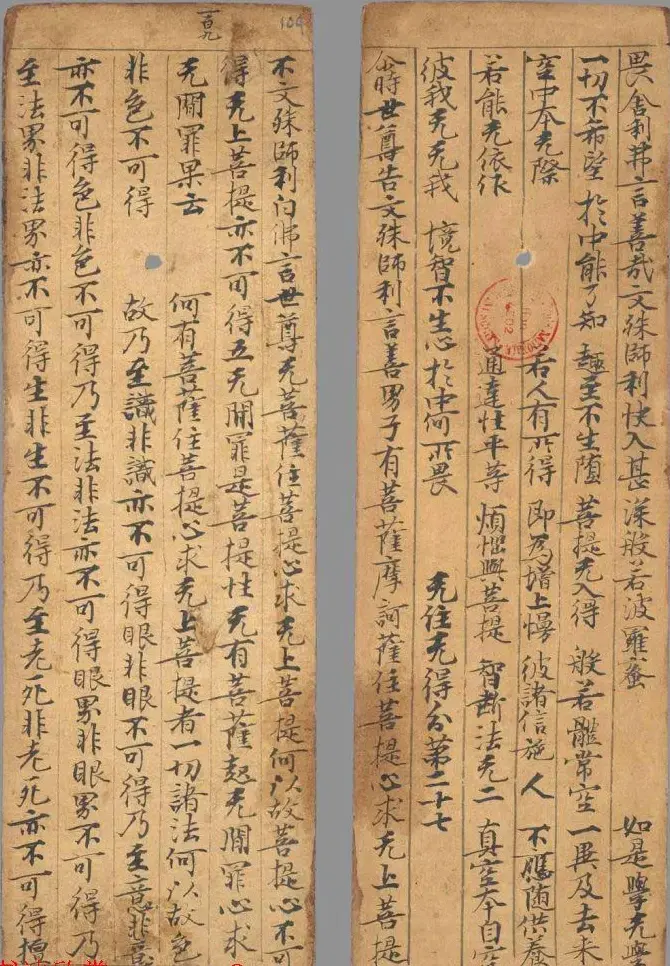 畏舍利弗言善哉文殊師利快入甚深般若波羅蜜 如是學无學
一切不希望 於中能了知 趣至不生墮 菩提无入得 般若體常空 一異及去来
空中本无際 若人有所得 即為增上慢 彼諸信施人 不應随供養
若能无依作 通達性平等 煩惱與菩提 智断法无二 真空本自空
彼我无无我 境智不生心 於中何所畏 无住无得分第二十七
尒時世尊告文殊師利言善男子有菩薩摩訶薩住菩提心求无上菩提
一百九
不文殊師利白佛言世尊无菩薩住菩提心求无上菩提何以故菩提心不可
得无上菩提亦不可得五无間罪是菩提性无有菩薩起无間罪心求
无間罪果云何有菩薩住菩提心求无上菩提者一切諸法何以故色
非色不可得故乃至識非識亦不可得眼非眼不可得乃至意非意
亦不可得色非色不可得乃至法非法亦不可得眼界非眼界不可得乃
至法界非法界亦不可得生非生不可得乃至老死非老死亦不可得檀